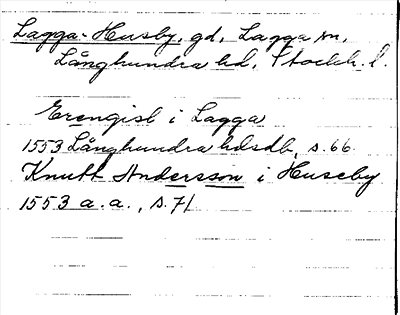 Lagga-Husby, gd, Lagga sn,
Långhundra hd, Stockh. l.
Erengisl i Lagga
1553 Långhundra hdsdb, s. 66.
Knutt Andersson i Huseby
1553 a.a., s. 71